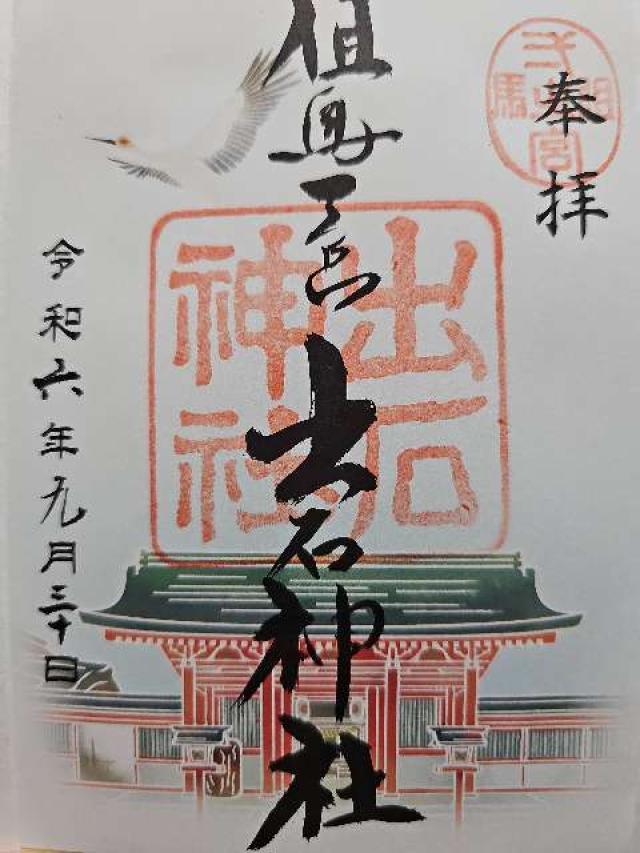 奉拝
但馬一宮
出石神社
出石神社
令和六年九月三十日